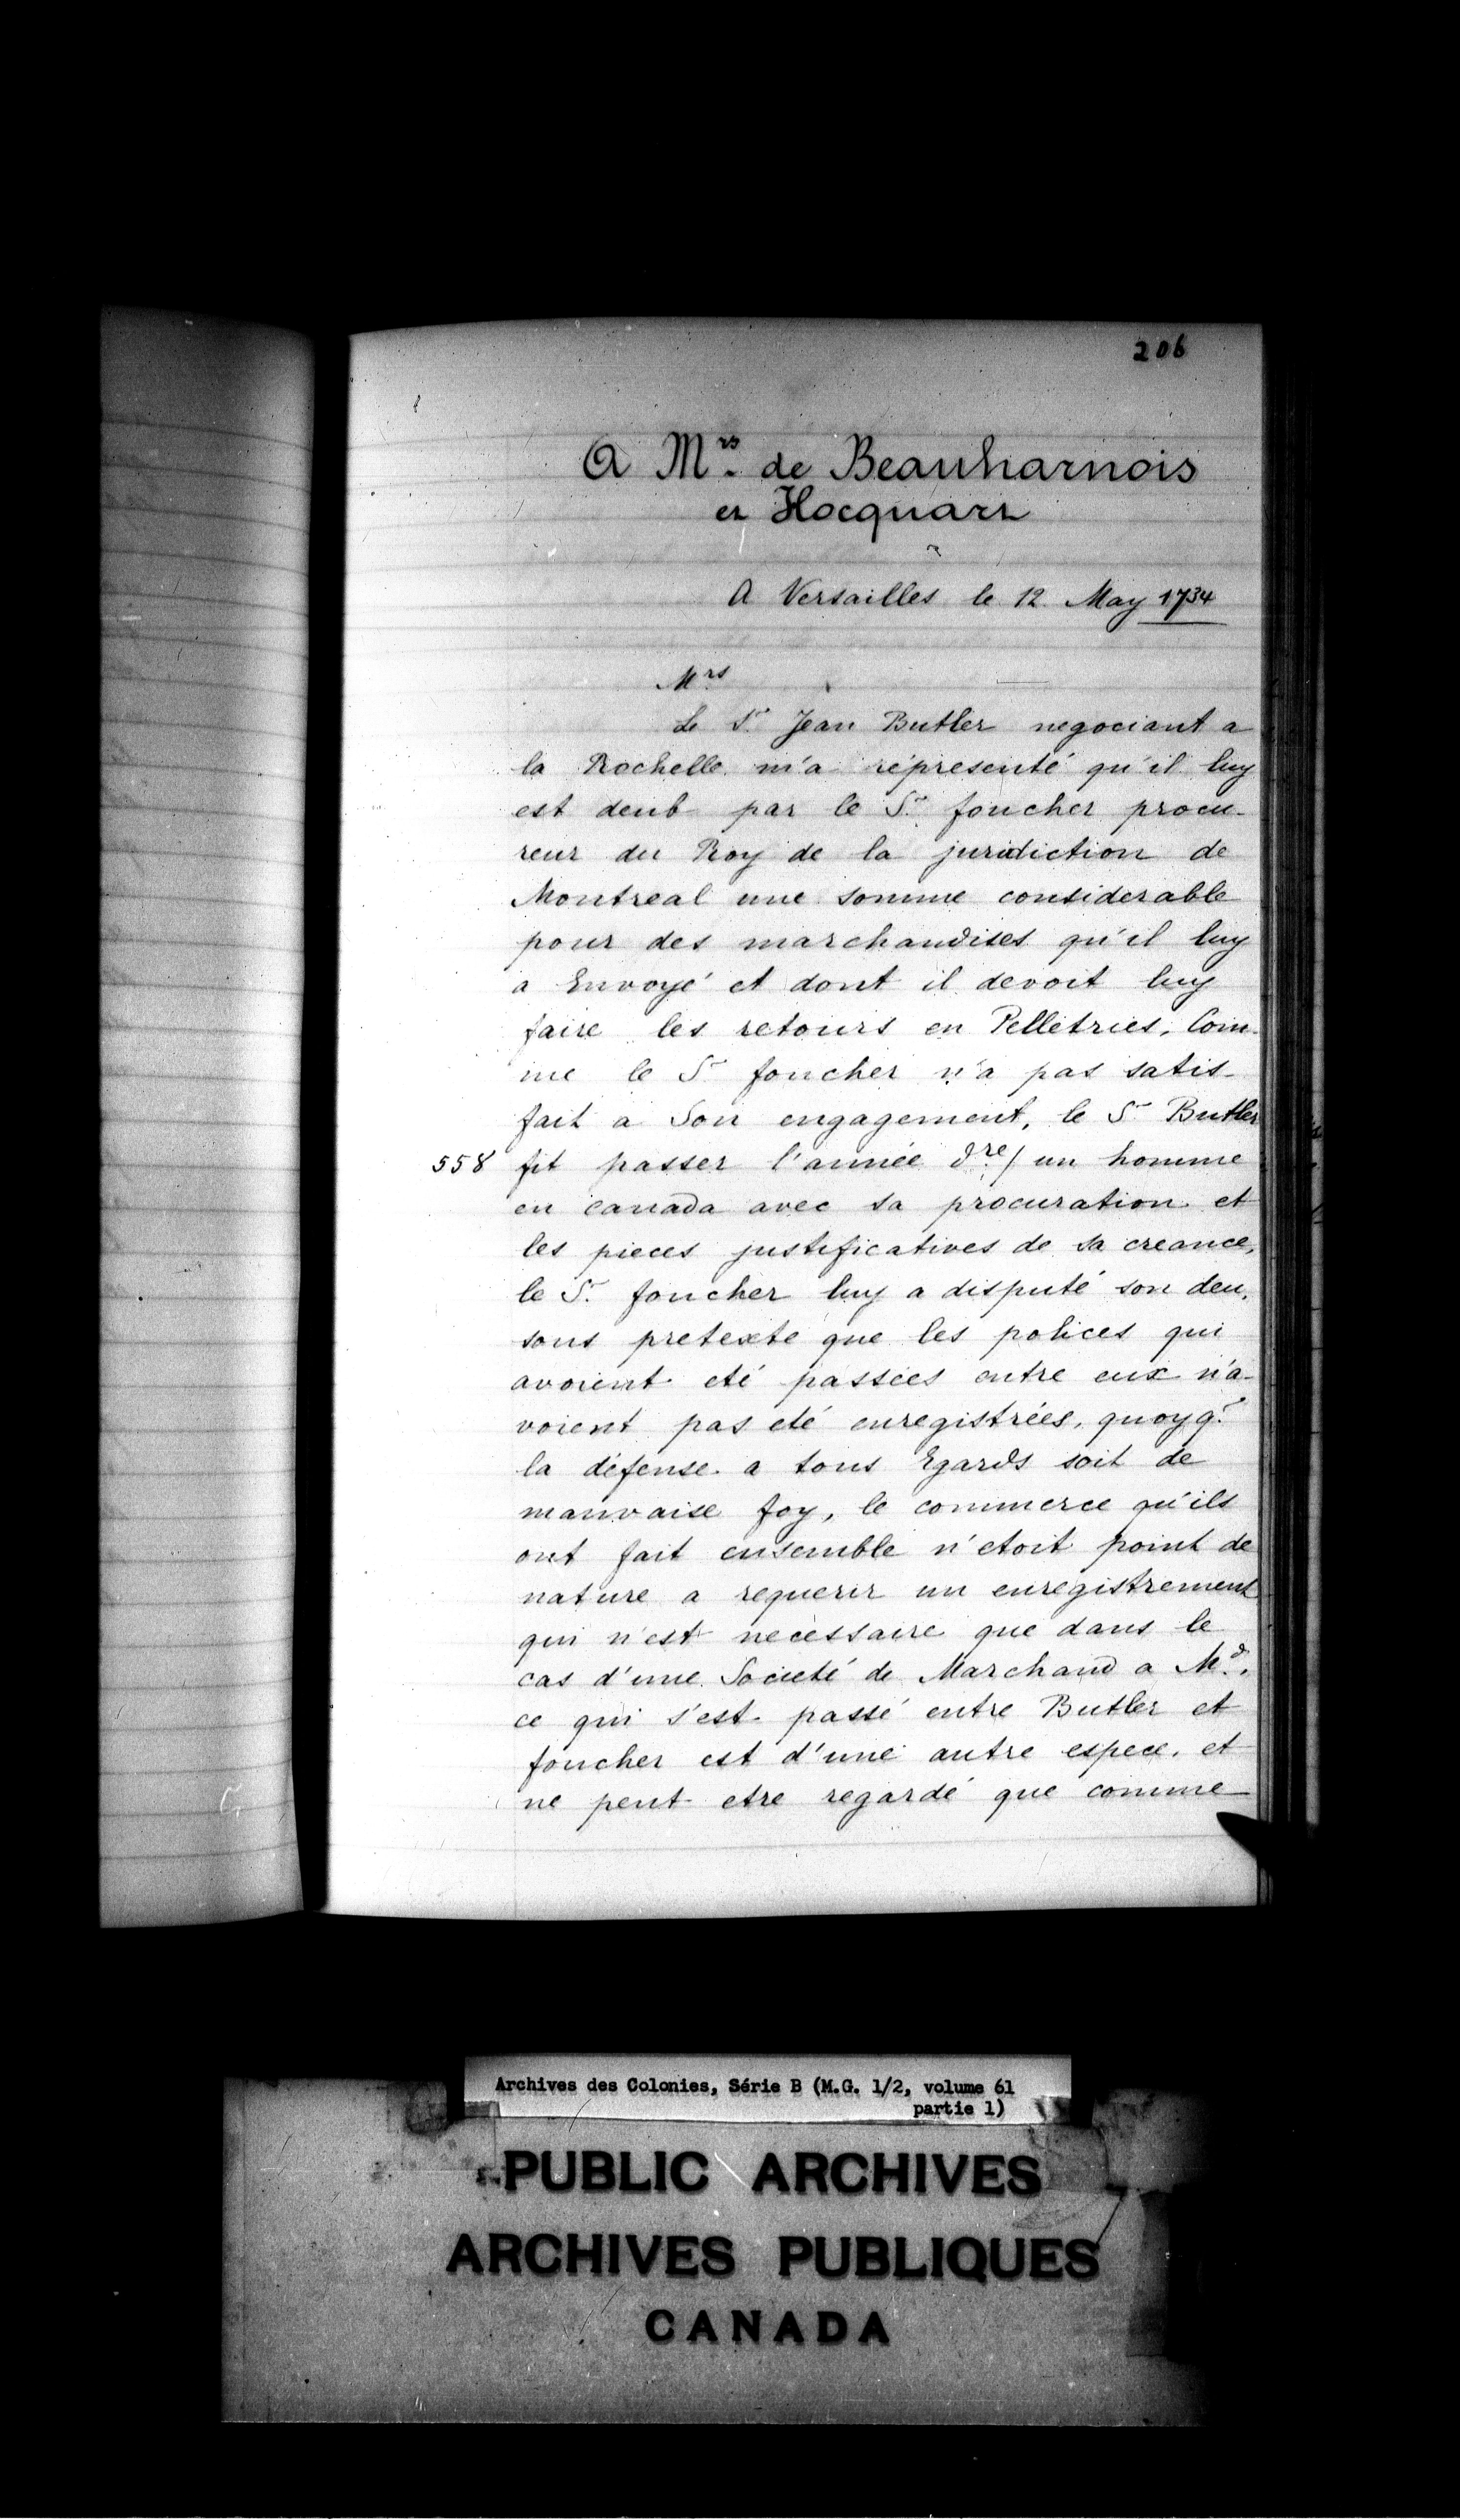 206
A Mrs. de Beauharnois
et Hocquart
A Versailles le 12 May 1734
Mrs
Le Sr. Jean Butler negociant a
la Rochelle m'a représenté qu'il luy
est deub par le Sr. foucher procu-
reur du Roy de la juridiction de
Montreal une somme considerable
pour des marchandises qu'il luy
a Envoyé et dont il devoit luy
faire les retours en Pelletries. Com-
me le Sr foucher n'a pas satis-
fait a Son engagement, le Sr Butler
558 fit passer l'année dre/ un homme
en canada avec sa procuration et
les pieces justificatives de sa creance,
le Sr. foucher luy a disputé son deu,
sous pretexte que les polices qui
avoient eté passées entre eux n'a-
voient pas eté enregistrées, quoyq.
la défense a tous Egards soit de
mauvaise foy, le commerce qu'ils
ont fait ensemble n'etoit point de
nature a requerir un enregistrement
qui n'est necessaire que dans le
cas d'une Societé de Marchand a Md.
ce qui s'est passé entre Butler et
foucher est d'une autre espece, et
ne peut etre regardé que comme
Archives des Colonies, Série B (M.G. 1/2, volume 61
partie 1)
PUBLIC ARCHIVES
ARCHIVES PUBLIQUES
CANADA